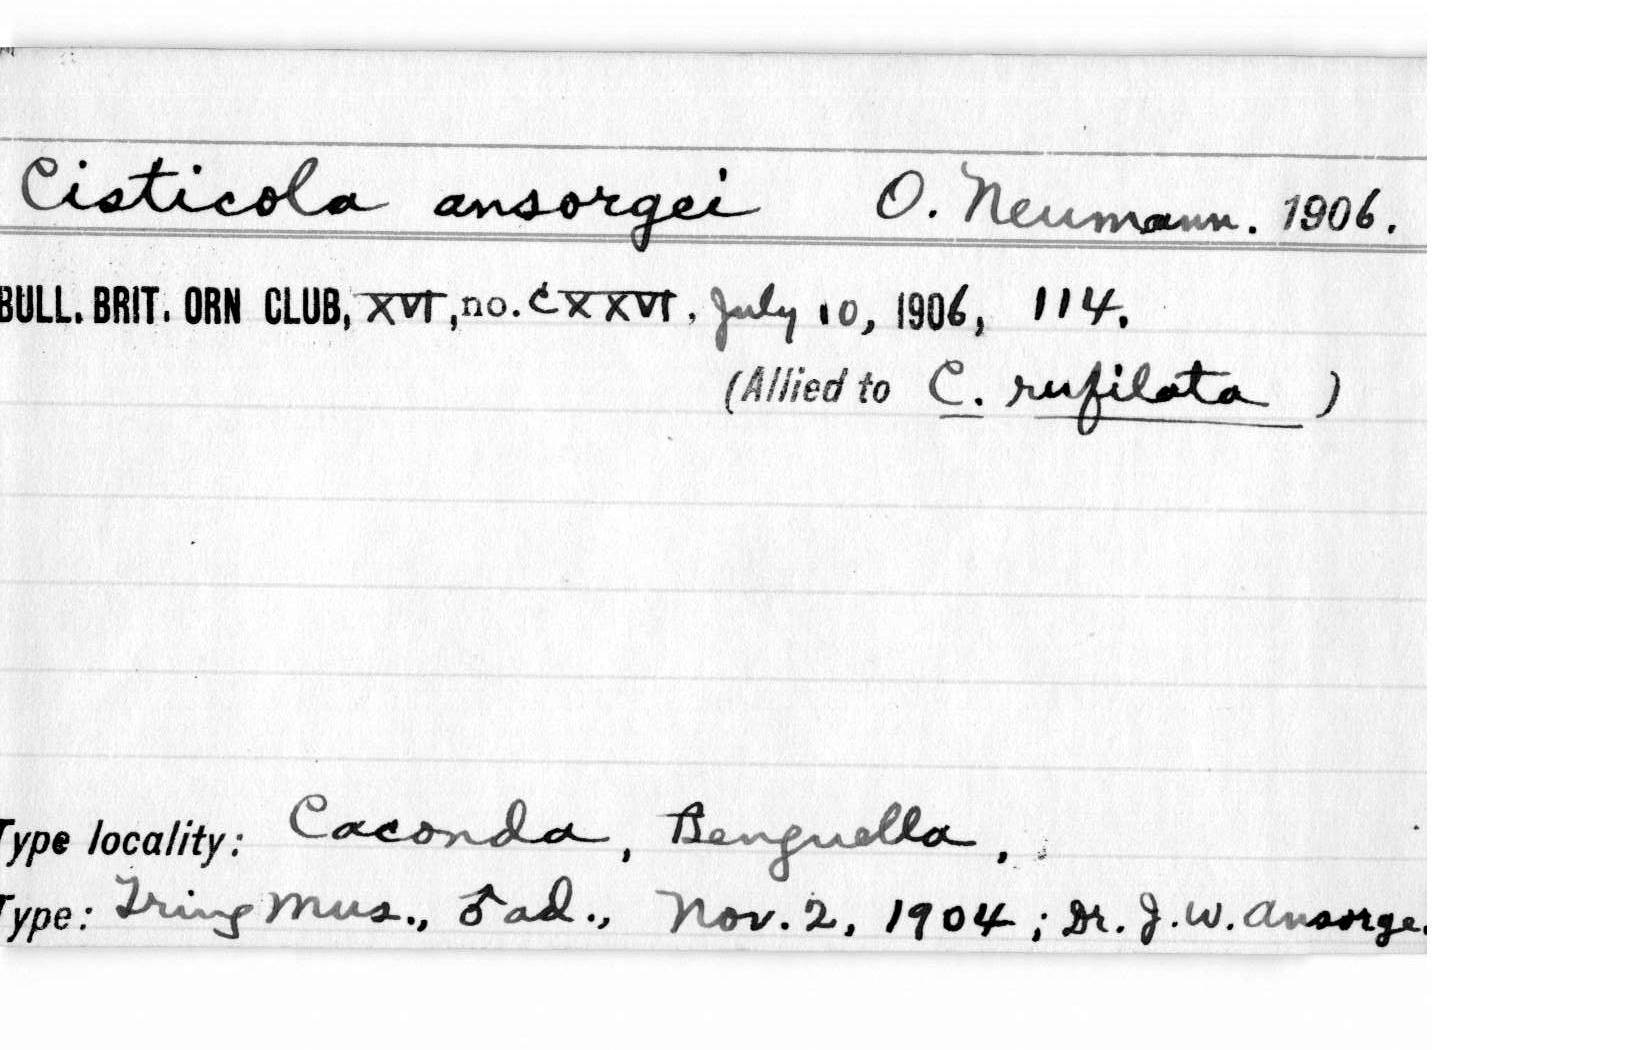 Cisticola ansorgei O. Neumann. 1906.
BULL. BRIT. ORN CLUB, XVI, no. CXXVI, July 10, 1906, 114.
(Allied to C. rufilata )
Type locality: Caconda, Benguella,
Type: Tring Mus., ♂ ad., Nov. 2, 1904; Dr. J. W. Ansorge.